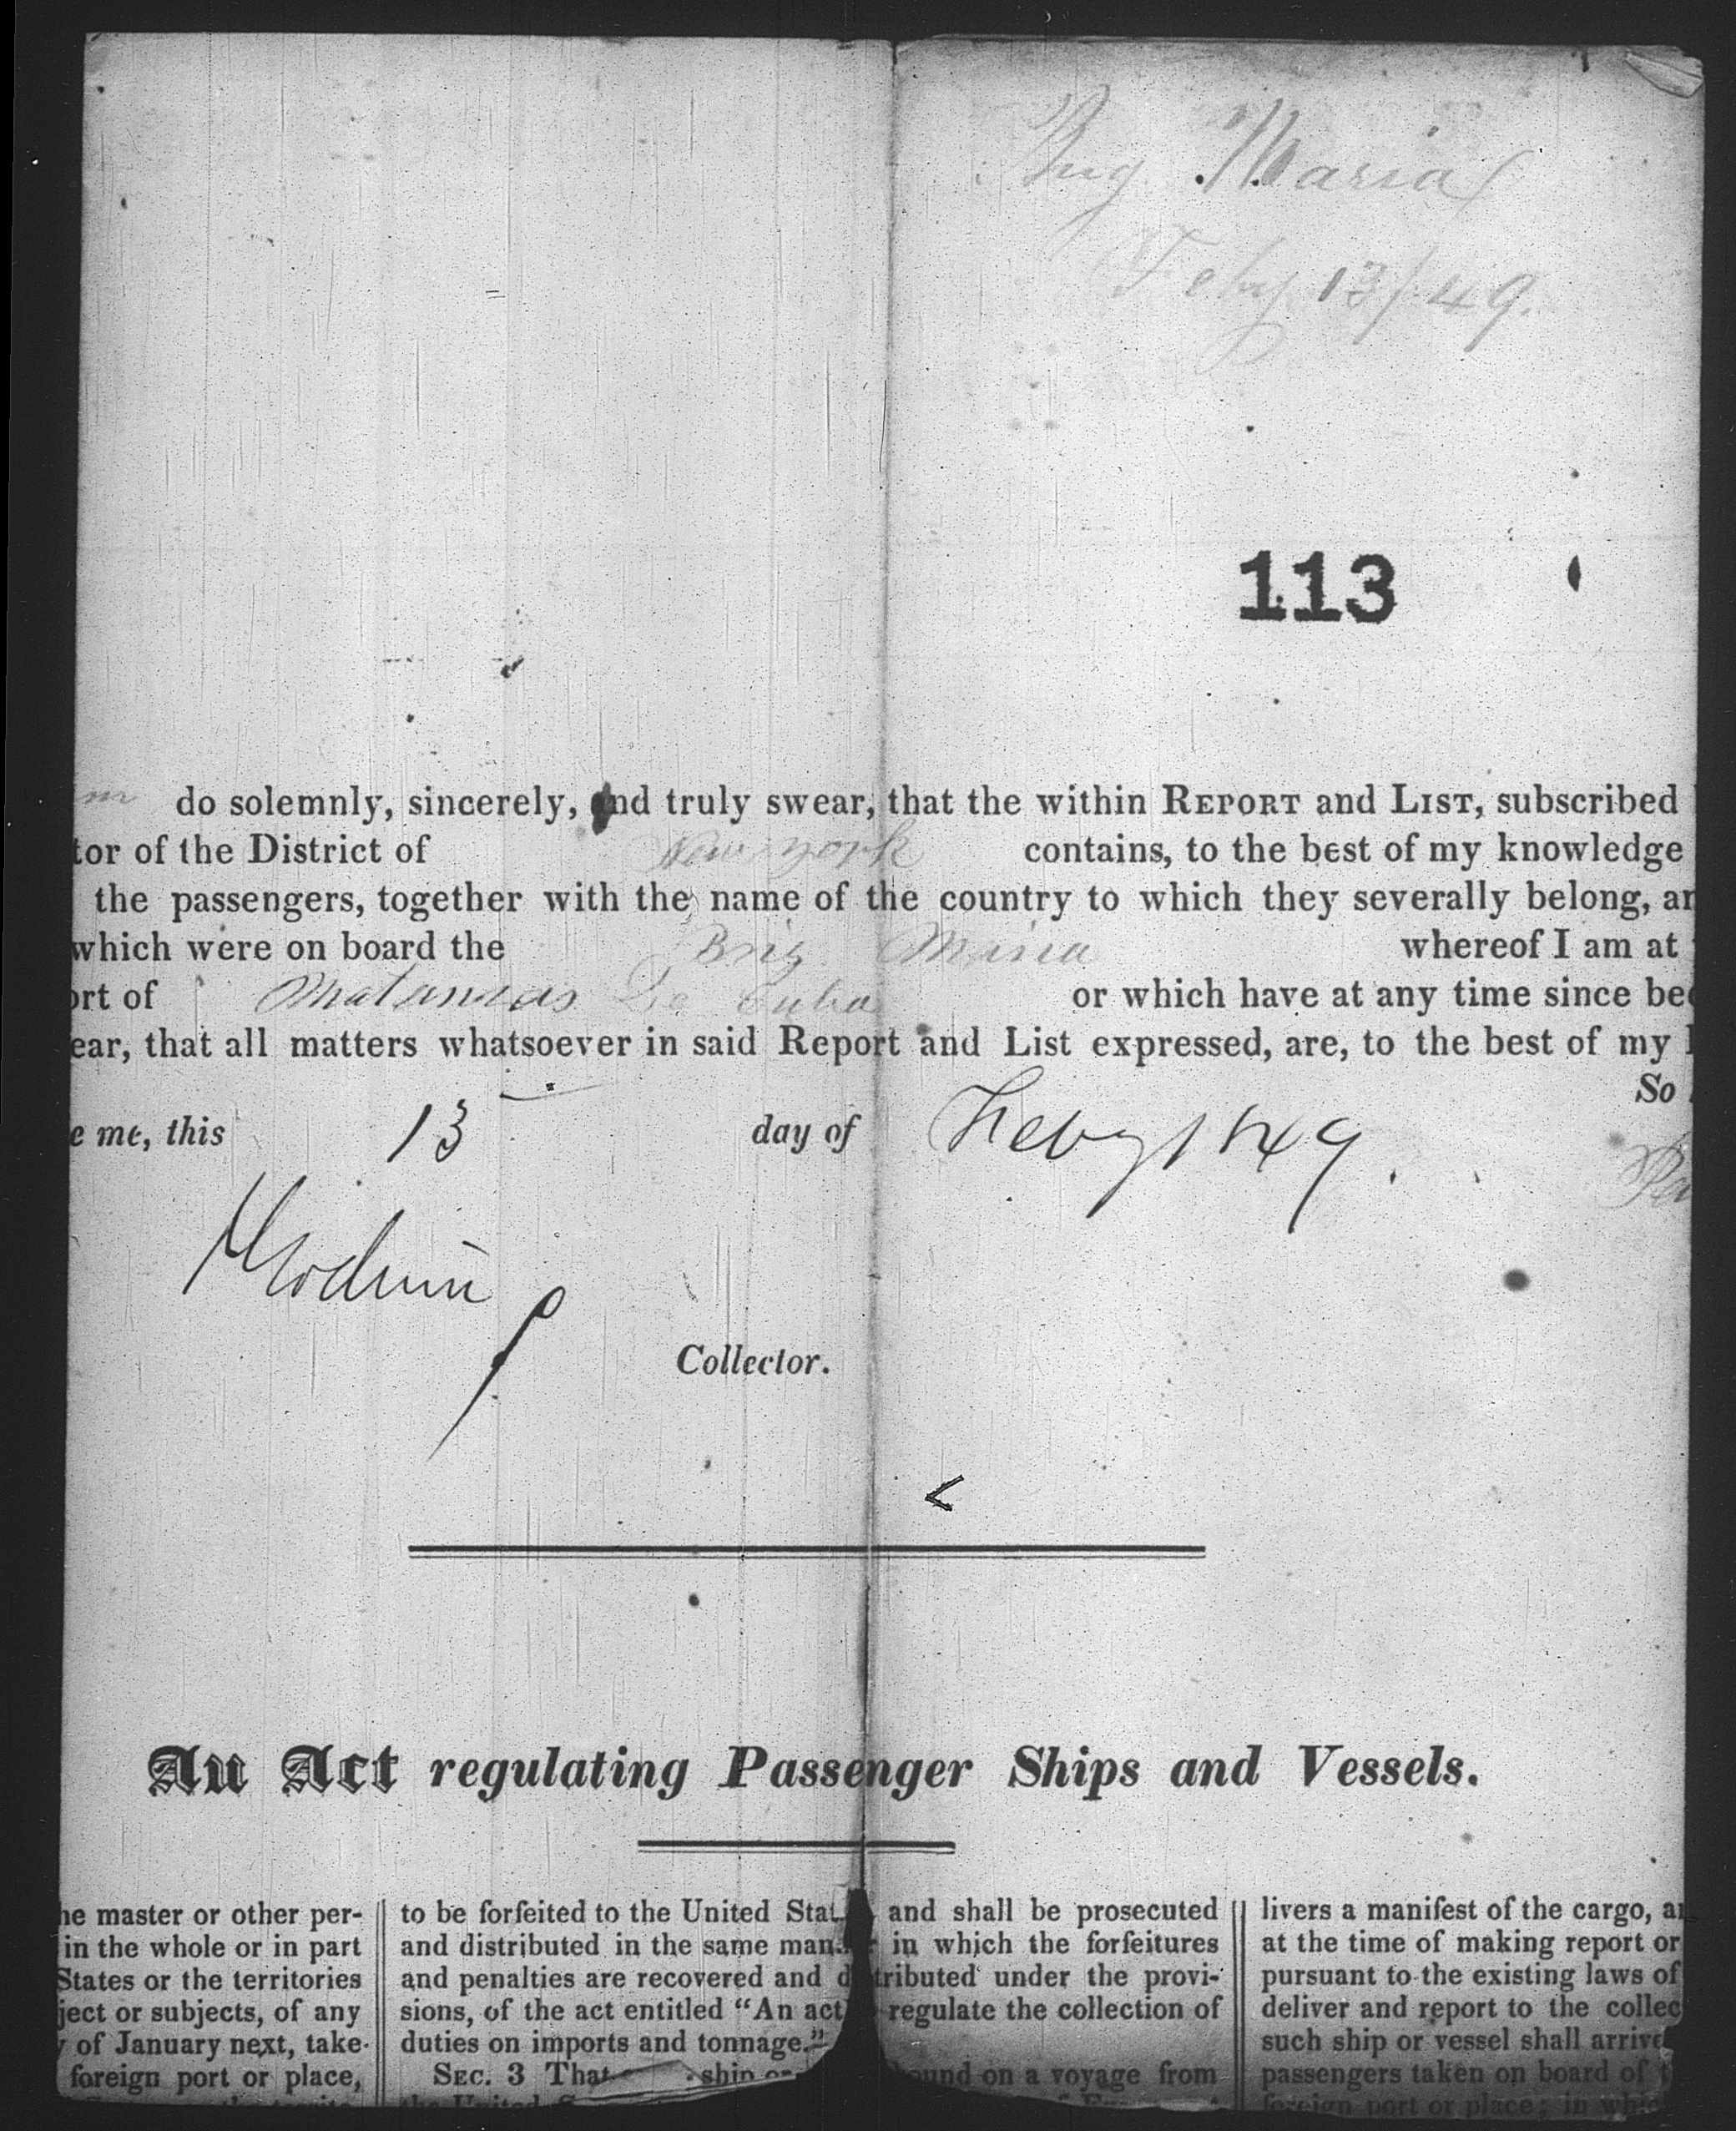 Brig Maria
Feby 13/49.
113
do solemnly, sincerely, and truly swear, that the within REPORT and LIST, subscribed
tor of the District of New York contains, to the best of my knowledge
the passengers, together with the name of the country to which they severally belong, an
which were on board the Brig Maria whereof I am at
ort of Matanzas De Cuba or which have at any time since bee
ear, that all matters whatsoever in said Report and List expressed, are, to the best of my
So
e me, this 13 day of Feby 1849.
Collector.
<
An Act regulating Passenger Ships and Vessels.
he master or other per-
in the whole or in part
States or the territories
ject or subjects, of any
y of January next, take
foreign port or place,
to be forfeited to the United Stat and shall be prosecuted
and distributed in the same man r in which the forfeitures
and penalties are recovered and d tributed under the provi-
sions, of the act entitled "An act regulate the collection of
duties on imports and tonnage."
SEC. 3 That ship or ound on a voyage from
the United
livers a manifest of the cargo, an
at the time of making report or
pursuant to the existing laws of
deliver and report to the collec
such ship or vessel shall arrive
passengers taken on board of t
foreign port or place; in whic